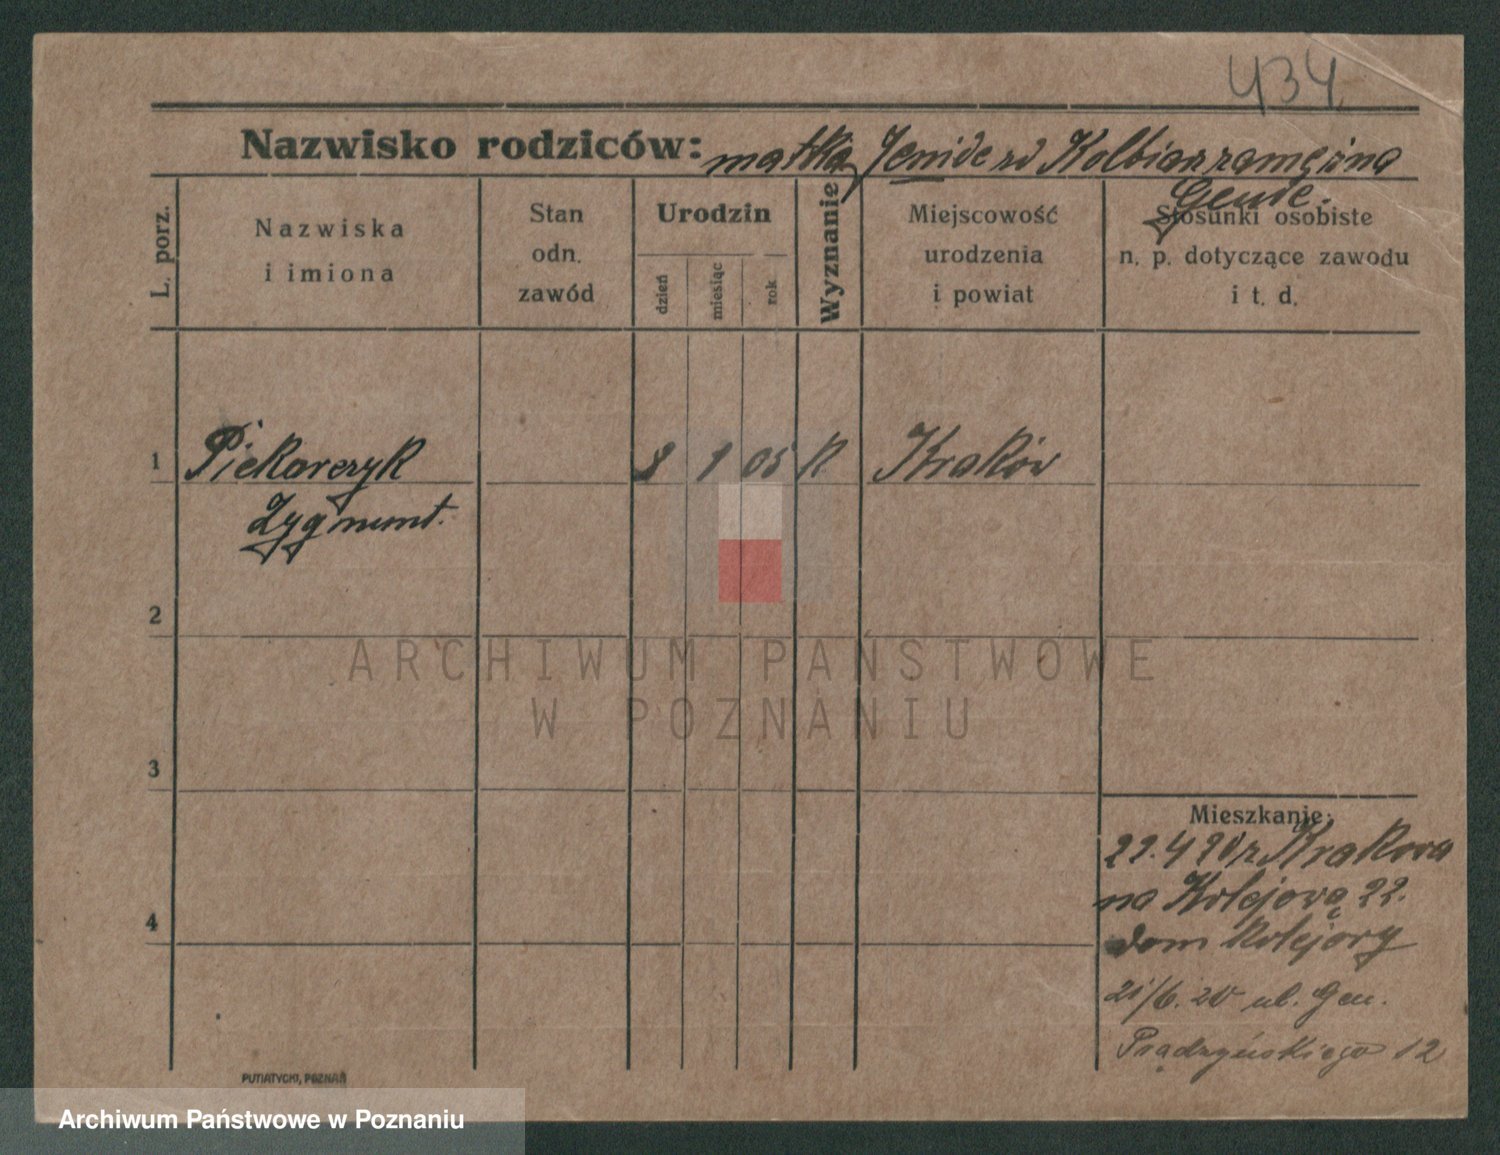 434
Nazwisko rodziców: matka
Gende.
L. porz.
Nazwiska
i imiona
Stan
odn.
zawód
Urodzin
dzień
miesiąc
rok
Wyznanie
Miejscowość
urodzenia
i powiat
Stosunki osobiste
n. p. dotyczące zawodu
i t. d.
1 Piekarczyk 8 1 05 K Kraków
Zygmunt.
2
3
4
ARCHIWUM PAŃSTWOWE
W POZNANIU
Mieszkanie:
22.4 20 z Krakowa
na Kolejową 22.
dom kolejowy
21/6. 20 ul. Gen.
Prądzyńskiego 12
PUTIATYCKI, POZNAŃ
Archiwum Państwowe w Poznaniu